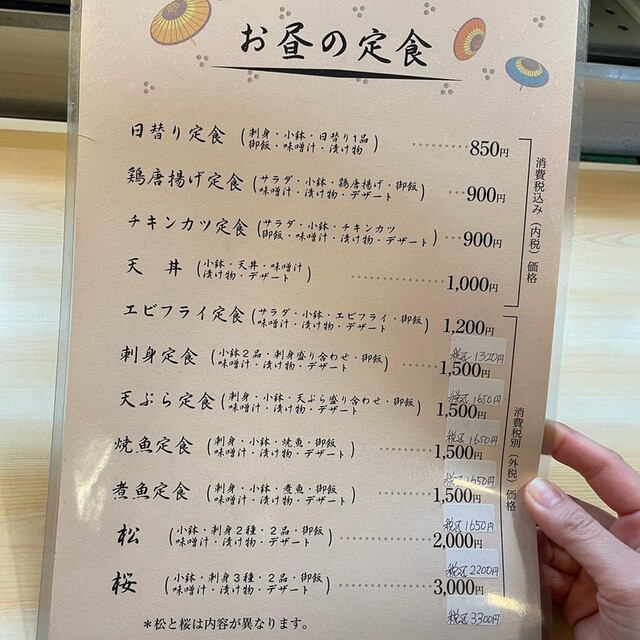 お昼の定食
日替り定食 (刺身・小鉢・日替り1品 850円
御飯・味噌汁・漬け物)
鶏唐揚げ定食 (サラダ・小鉢・鶏唐揚げ・御飯 900円
味噌汁・漬け物・デザート)
チキンカツ定食 (サラダ・小鉢・チキンカツ 900円
御飯・味噌汁・漬け物・デザート)
天丼 (小鉢・天丼・味噌汁 1,000円
漬け物・デザート)
消費税込み(内税)価格
エビフライ定食 (サラダ・小鉢・エビフライ・御飯 1,200円
味噌汁・漬け物・デザート)
税込1320円
刺身定食 (小鉢2品・刺身盛り合わせ・御飯 1,500円
味噌汁・漬け物・デザート)
税込1650円
天ぷら定食 (刺身・小鉢・天ぷら盛り合わせ・御飯 1,500円
味噌汁・漬け物・デザート)
税込1650円
焼魚定食 (刺身・小鉢・焼魚・御飯 1,500円
味噌汁・漬け物・デザート)
税込1650円
煮魚定食 (刺身・小鉢・煮魚・御飯 1,500円
味噌汁・漬け物・デザート)
税込1650円
松 (小鉢・刺身2種・2品・御飯 2,000円
味噌汁・漬け物・デザート)
税込2200円
桜 (小鉢・刺身3種・2品・御飯 3,000円
味噌汁・漬け物・デザート)
税込3300円
消費税別(外税)価格
*松と桜は内容が異なります。